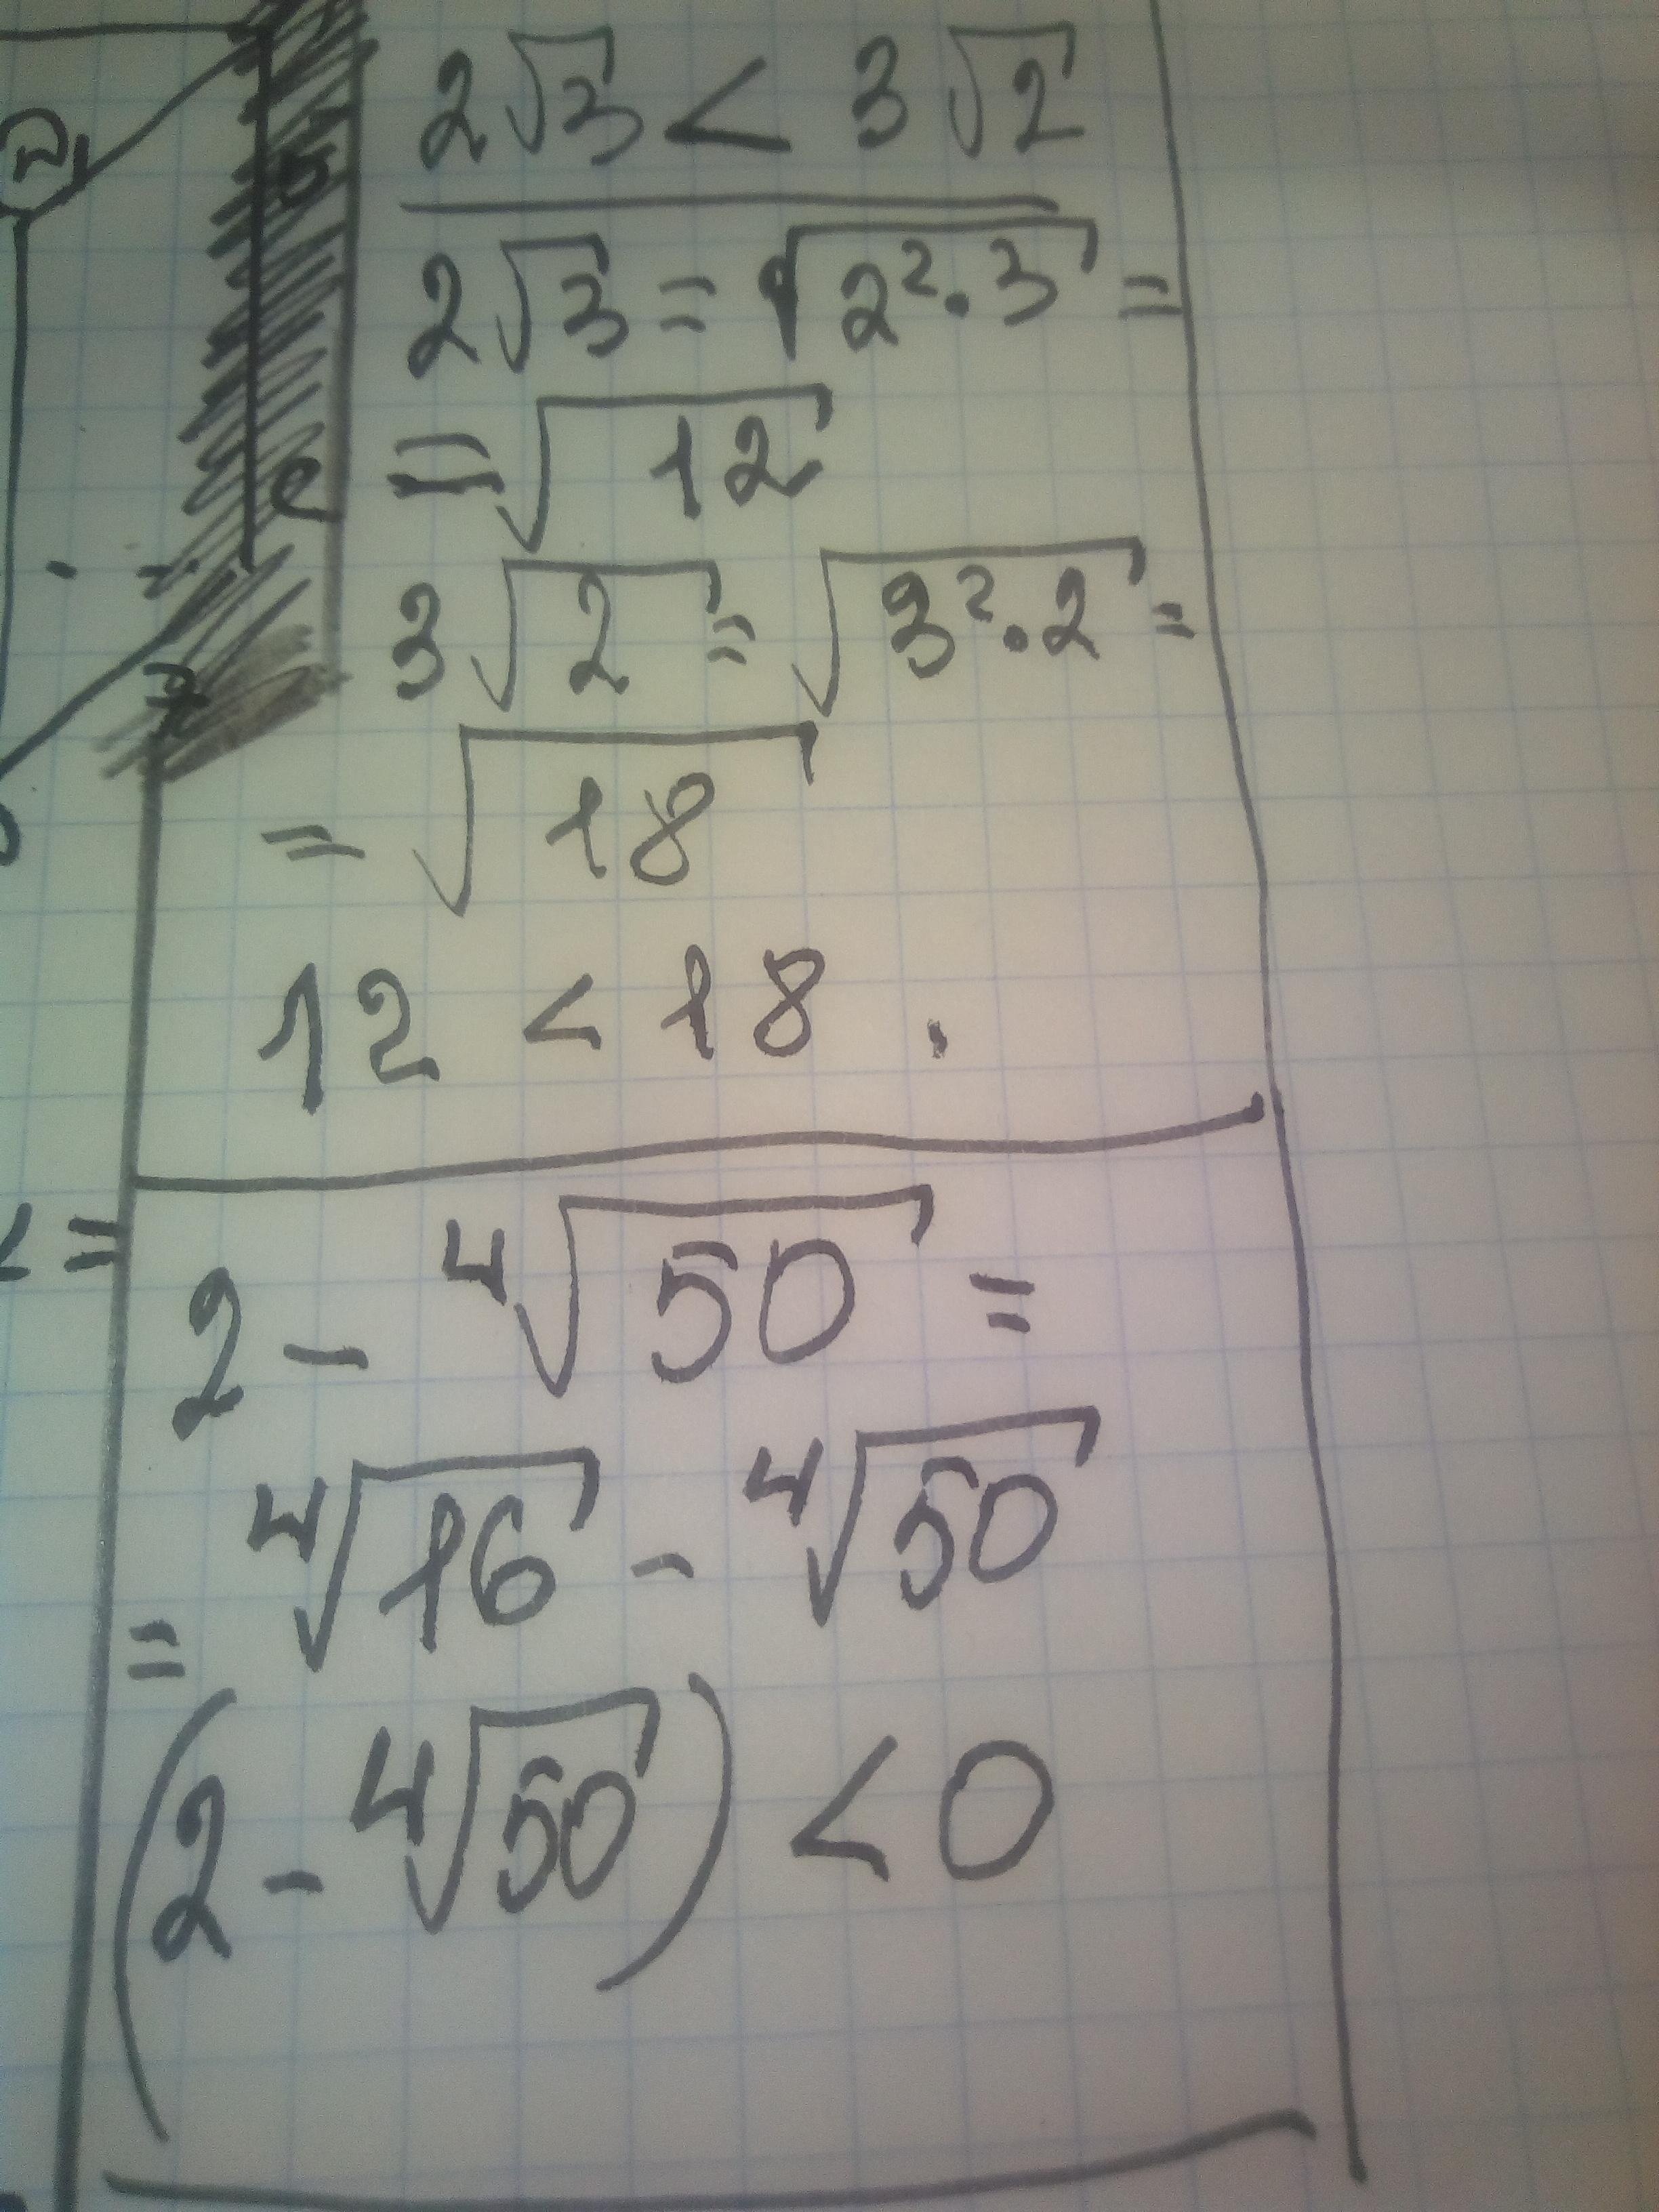 2√3 < 3√2
2√3 = √(2²·3) =
= √12
3√2 = √(3²·2) =
= √18
12 < 18 .
2 - ⁴√50 =
= ⁴√16 - ⁴√50
(2 - ⁴√50) < 0